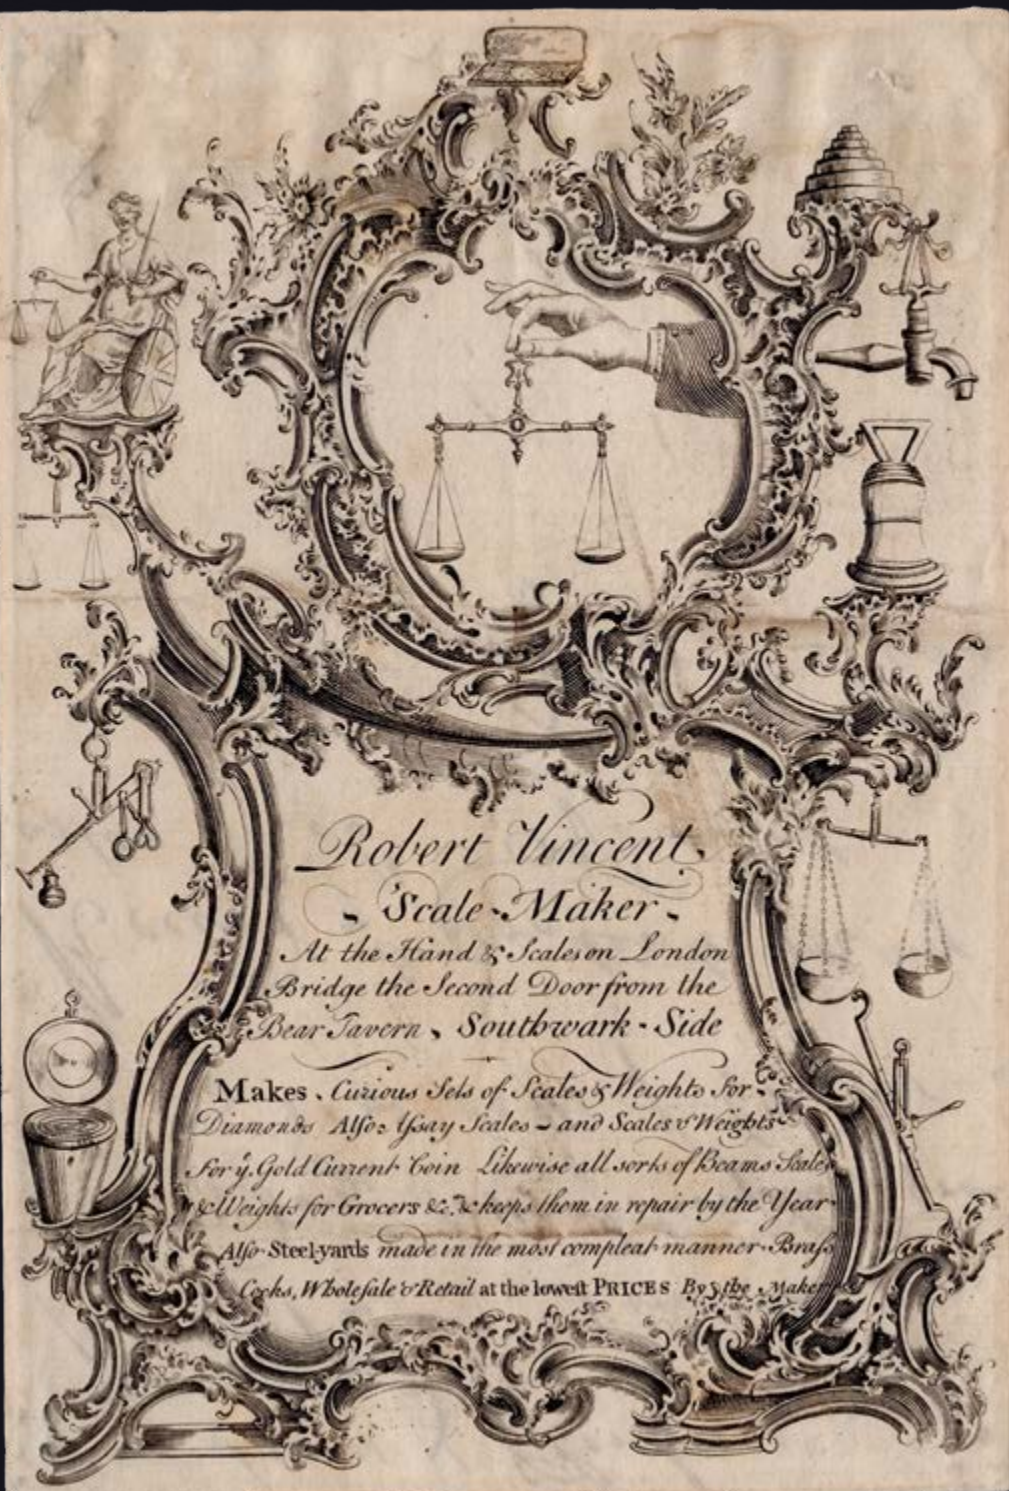 Robert Vincent,
- Scale-Maker -
At the Hand & Scales on London
Bridge the Second Door from the
Bear Tavern, Southwark-Side
Makes, Curious Sets of Scales & Weights for
Diamonds Alſo Aſsay Scales - and Scales & Weights
for yͤ Gold Current Coin Likewise all sorts of Beams Scales
& Weights for Grocers &c. & keeps them in repair by the Year
Alſo Steel-yards made in the most compleat manner Braſs
Cocks, Wholeſale & Retail at the loweſt PRICES By the Maker